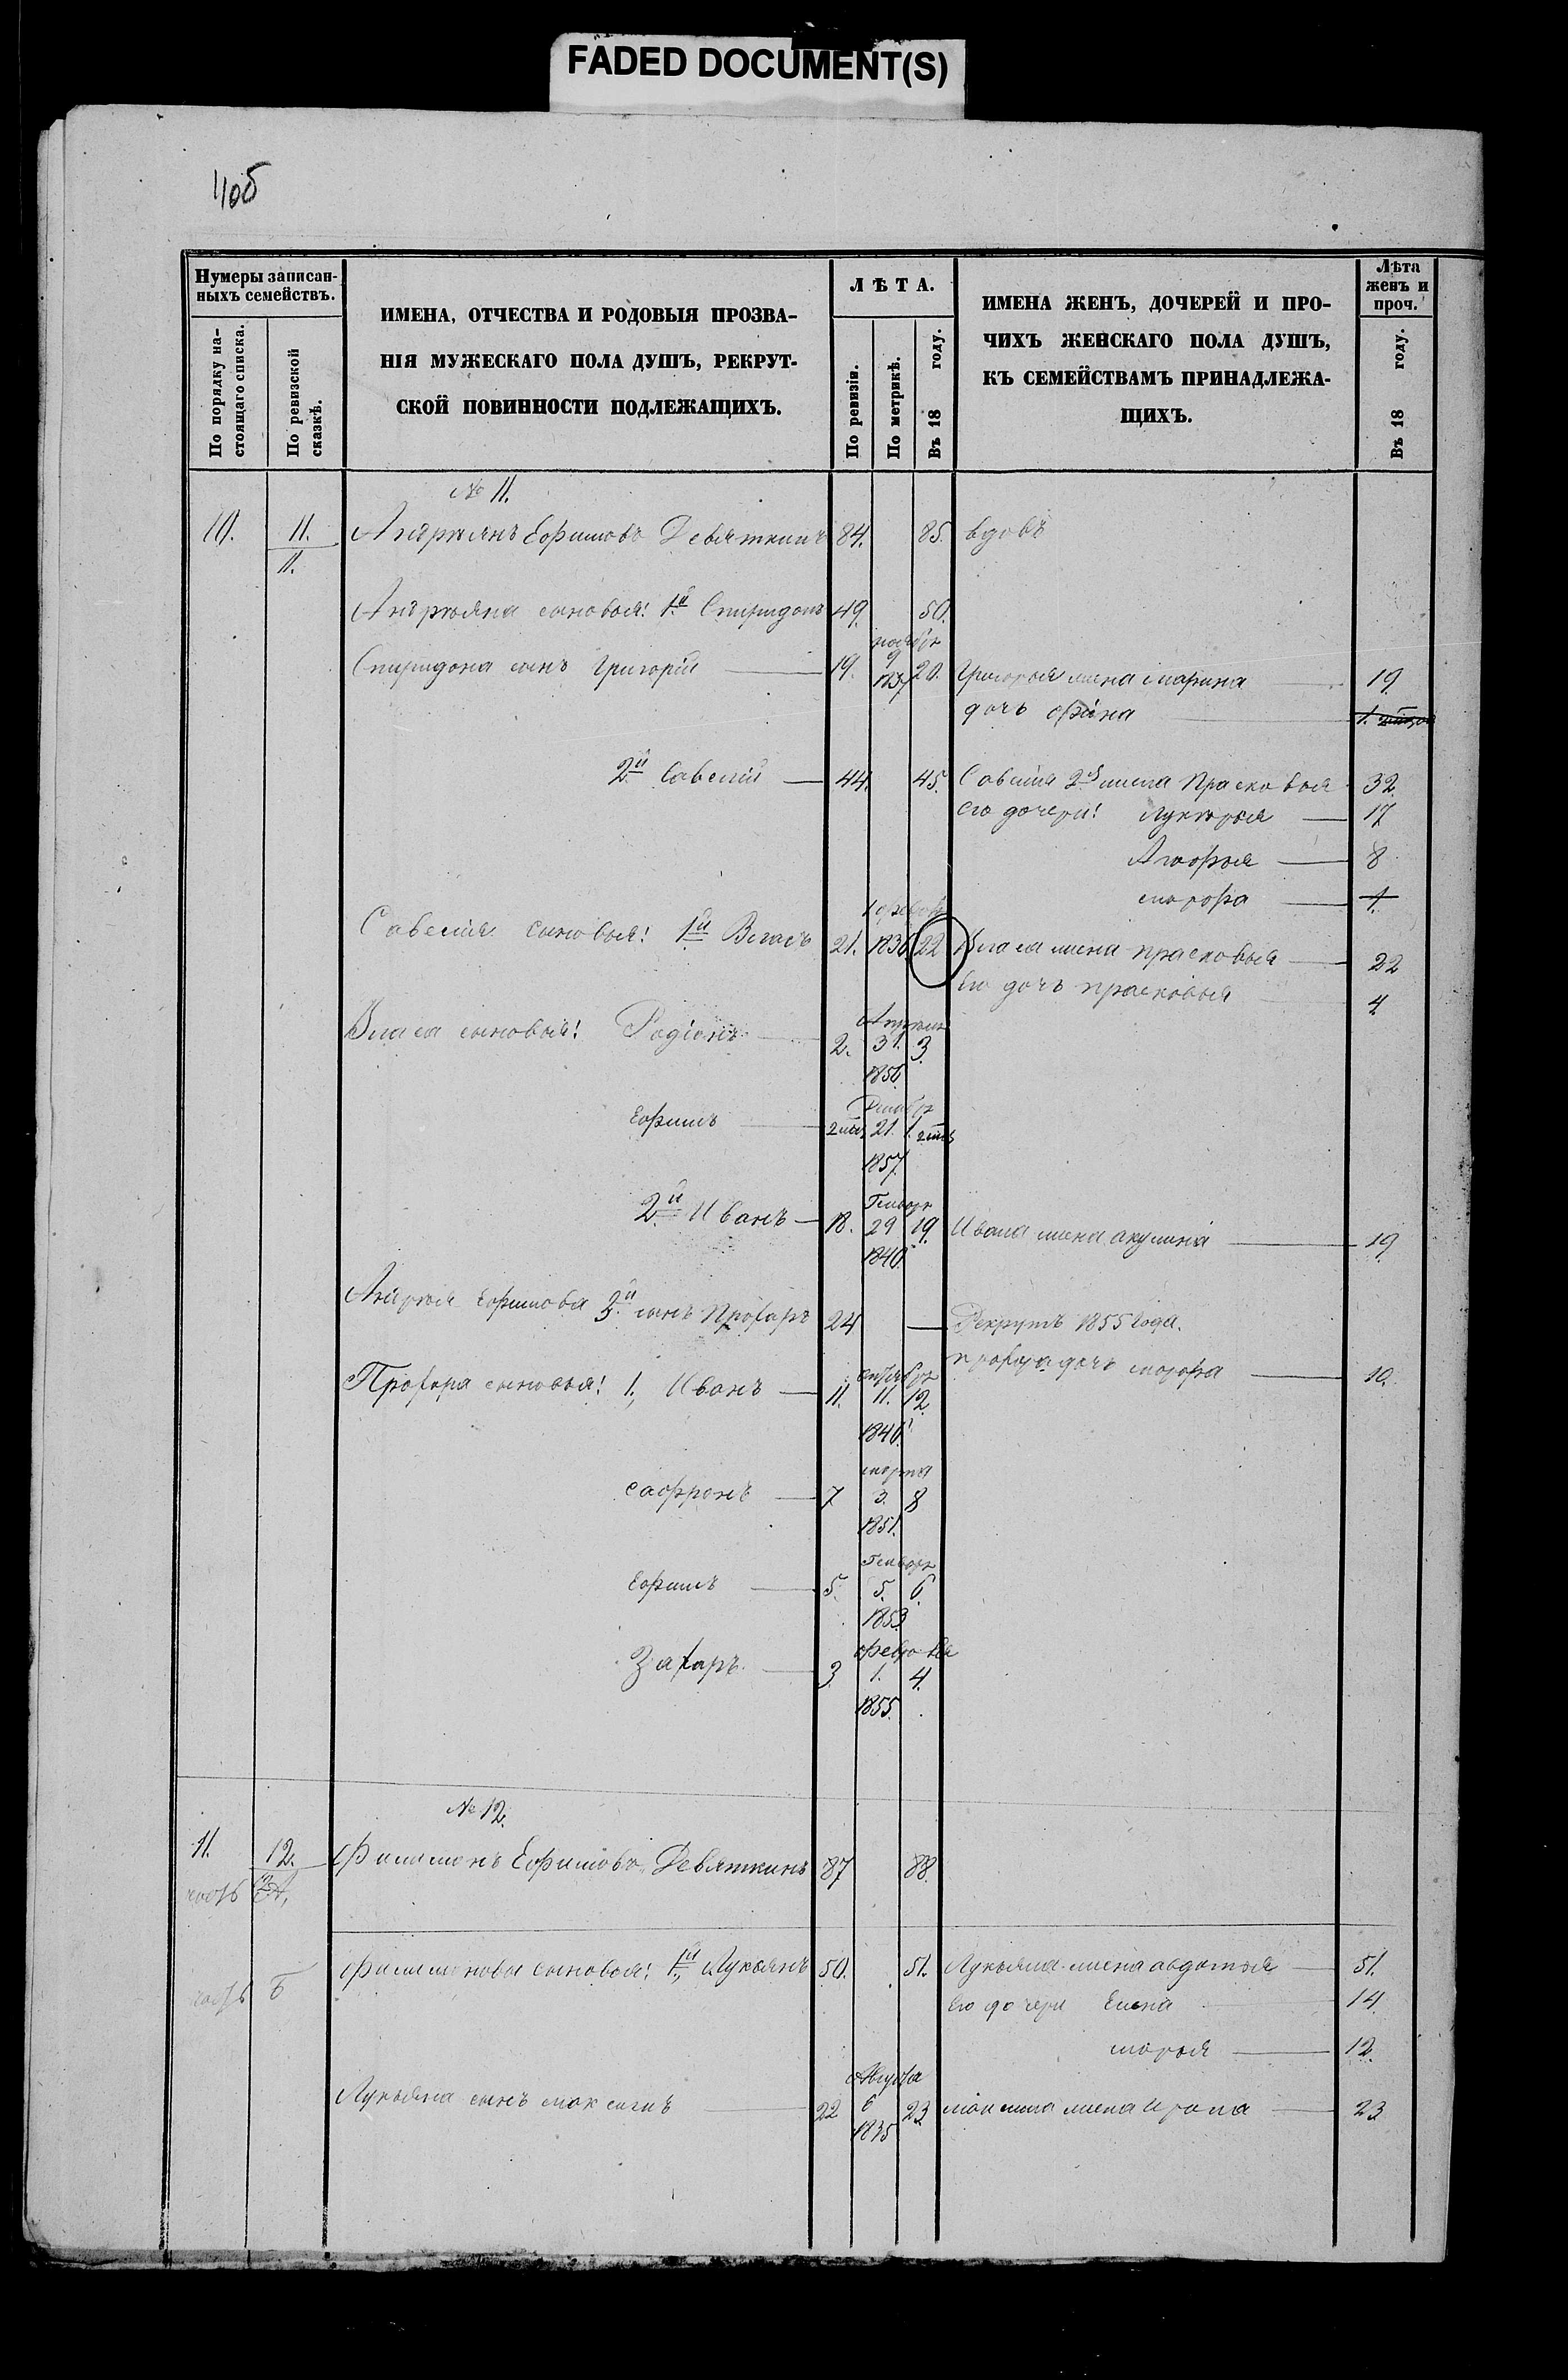 FADED DOCUMENT(S)
Нумеры записан-
ныхъ семействъ.
По порядку на-
стоящаго списка.
По ревизской
сказкѣ.
ИМЕНА, ОТЧЕСТВА И РОДОВЫЯ ПРОЗВА-
НІЯ МУЖЕСКАГО ПОЛА ДУШЪ, РЕКРУТ-
СКОЙ ПОВИННОСТИ ПОДЛЕЖАЩИХЪ.
ЛѢТА.
По ревизіи.
По метрикѣ.
Въ 18 году.
ИМЕНА ЖЕНЪ, ДОЧЕРЕЙ И ПРО-
ЧИХЪ ЖЕНСКАГО ПОЛА ДУШЪ,
КЪ СЕМЕЙСТВАМЪ ПРИНАДЛЕЖА-
ЩИХЪ.
Лѣта
женъ и
проч.
Въ 18 году.
№ 11.
10. 11. Андрюянъ Ефимовъ Девяткинъ 84. 85. вдовъ
11.
Андрюяна сыновья: 1й Спиридонъ 49. 50.
ноября
Спиридона сынъ Григорій 19. 9 20. Григорья жена марина 19.
1837
дочь
2й Савелій 44. 45. Савелія 2й жена Прасковья 32.
Его дочери: Лукерья 17
8
марфа 1.
Савелія сыновья: 1й Власъ 21. 1836 22 Власа жена прасковья 22
Его дочь прасковья 4
Власа сыновья: Родіонъ 2. 31. 3.
1856
Декабря
Ефимъ 2 мѣс 21. 1. 2 мѣс
1857
Генваря
2й Иванъ 18. 29 19. Ивана жена акулина 19
1840
Ефимова 3й сынъ Прохоръ 24 Рекрутъ 1855 Года.
прохора дочь марфа 10.
октября
Прохора сыновья: 1, Иванъ 11. 11. 12.
1846
марта
сафронъ 7 3. 8
1851.
Генваря
Ефимъ 5. 5. 6.
1853
февраля
Захаръ 3 1. 4.
1855.
№ 12.
11. 12. Филимонъ Ефимовъ Девяткинъ 87 88.
часть А,
часть Б Филимоновы сыновья: 1й, Лукьянъ 50. 51. Лукьяна жена авдотья 51.
Его дочери Елена 14.
марья 12.
Августа
Лукьяна сынъ максимъ 22 6 23 максима жена Ирина 23
1835